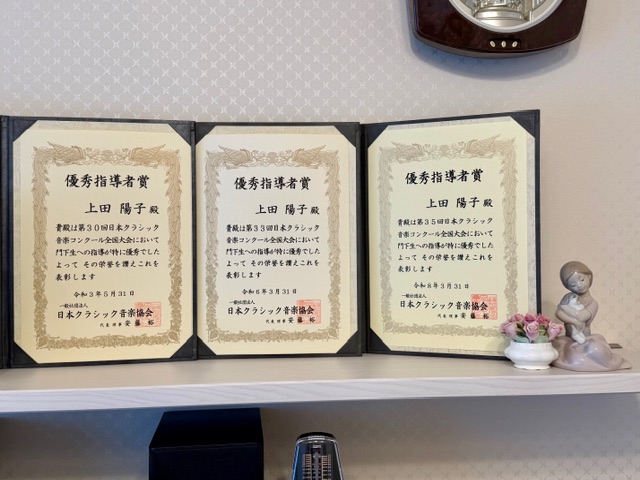 優秀指導者賞
上田 陽子 殿
貴殿は第30回日本クラシック
音楽コンクール全国大会において
門下生への指導が特に優秀でした
よって その栄誉を讃えこれを
表彰します
令和3年5月31日
一般社団法人
日本クラシック音楽協会
代表理事 安藤 裕
優秀指導者賞
上田 陽子 殿
貴殿は第33回日本クラシック
音楽コンクール全国大会において
門下生への指導が特に優秀でした
よって その栄誉を讃えこれを
表彰します
令和6年3月31日
一般社団法人
日本クラシック音楽協会
代表理事 安藤 裕
優秀指導者賞
上田 陽子 殿
貴殿は第35回日本クラシック
音楽コンクール全国大会において
門下生への指導が特に優秀でした
よって その栄誉を讃えこれを
表彰します
令和8年3月31日
一般社団法人
日本クラシック音楽協会
代表理事 安藤 裕